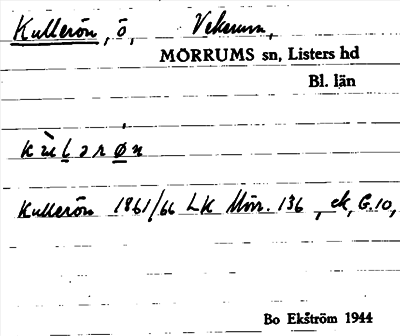 Kullerön, ö, Vekerum,
MÖRRUMS sn, Listers hd
Bl. län
kùlərø̀n
Kullerön 1861/66 LK Mör. 136, ek, G.10,
Bo Ekström 1944